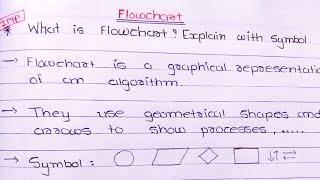 Flowchart
IMP
* What is Flowchart? Explain with Symbol.
→ Flowchart is a graphical representati
of an algorithm.
→ They use geometrical shapes and
arrows to show processes, .....
→ Symbol :